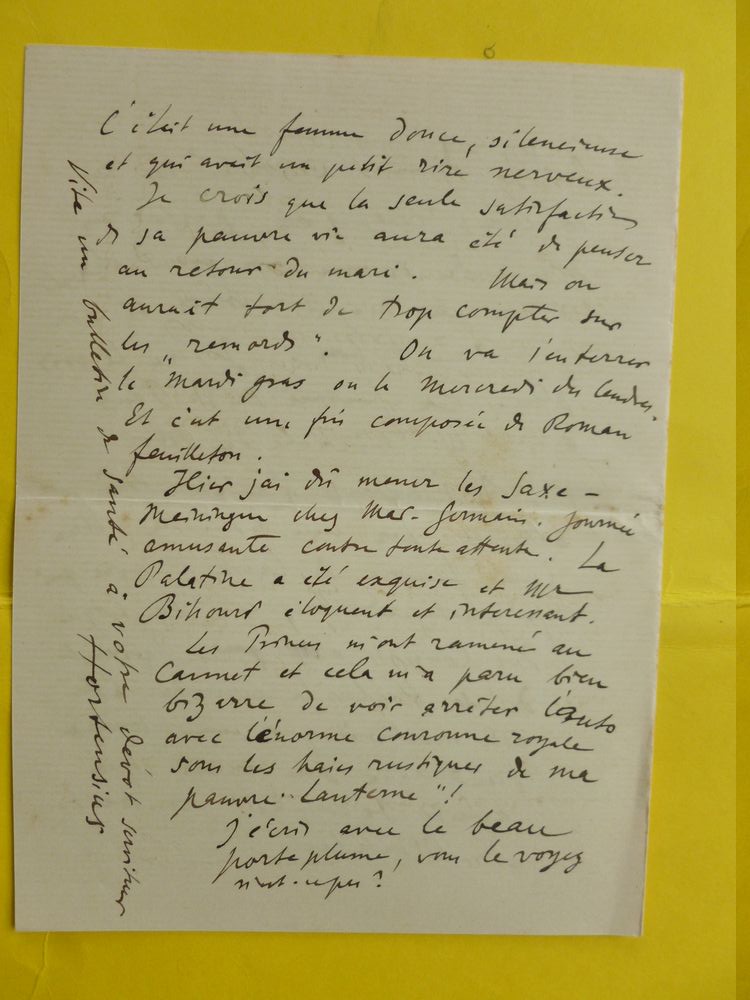 C'était une femme douce, silencieuse
et qui avait un petit rire nerveux.
Je crois que la seule satisfaction
de sa pauvre vie aura été de penser
au retour du mari. Mais on
aurait tort de trop compter sur
les „remords". On va l'enterrer
le Mardi gras ou le Mercredi des Cendres.
Et c'est une fin composée de Roman
feuilleton.
Hier j'ai dû mener les Saxe-
Meiningen chez Mar-Germain. Journée
amusante contre toute attente. La
Palatine a été exquise et Mr
Bihourd éloquent et interessant.
Les Princes m'ont ramené au
Cannet et cela m'a paru bien
bizarre de voir arrêter l'auto
avec l'énorme couronne royale
sous les haies rustiques de ma
pauvre „Lanterne"!
J'écris avec le beau
porteplume, vous le voyez
n'est-ce pas?
Vite un bulletin de santé à votre dévot serviteur
Hortensius